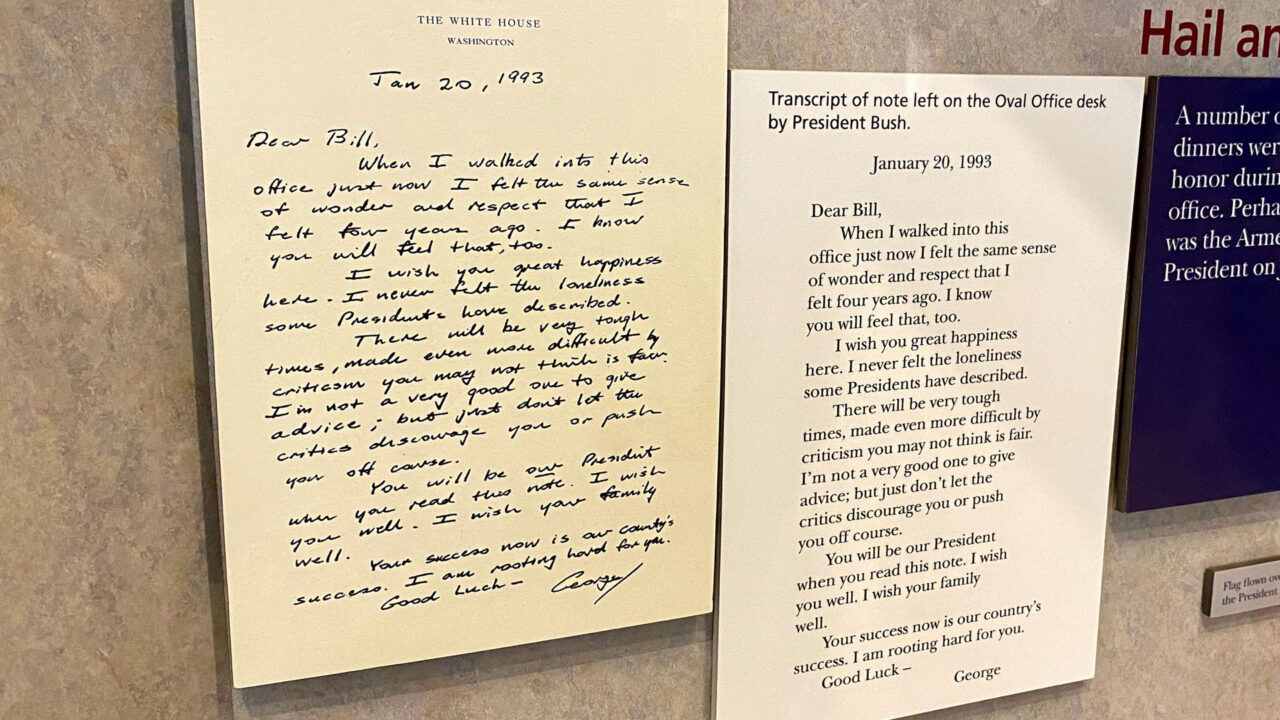 THE WHITE HOUSE
WASHINGTON
Jan 20, 1993
Dear Bill,
When I walked into this
office just now I felt the same sense
of wonder and respect that I
felt four years ago. I know
you will feel that, too.
I wish you great happiness
here. I never felt the loneliness
some Presidents have described.
There will be very tough
times, made even more difficult by
criticism you may not think is fair.
I'm not a very good one to give
advice; but just don't let the
critics discourage you or push
you off course.
You will be our President
when you read this note. I wish
you well. I wish your family
well.
Your success now is our country's
success. I am rooting hard for you.
Good Luck –
George
Transcript of note left on the Oval Office desk
by President Bush.
January 20, 1993
Dear Bill,
When I walked into this
office just now I felt the same sense
of wonder and respect that I
felt four years ago. I know
you will feel that, too.
I wish you great happiness
here. I never felt the loneliness
some Presidents have described.
There will be very tough
times, made even more difficult by
criticism you may not think is fair.
I'm not a very good one to give
advice; but just don't let the
critics discourage you or push
you off course.
You will be our President
when you read this note. I wish
you well. I wish your family
well.
Your success now is our country's
success. I am rooting hard for you.
Good Luck – George
Hail
A number
dinners
honor
office.
was the
President on
Flag flown
the President